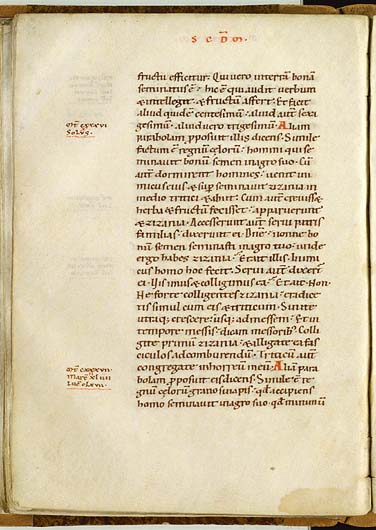 S C D M
fructu efficitur. Qui uero interrā bonā
seminatus ē. hic ē qui audit uerbum
& intellegit. & fructū affert. Et facit
aliud quidē centesimū. aliud aut sexa
gesimū. aliud uero trigesimū. Aliam
parabolam pposuit illis dicens. Simile
factum ē regnū celorū. homini qui se
minauit bonū semen in agro suo. Cū
aut dormirent homines. uenit ini
micus eius & supseminauit zizania in
medio tritici & abiit. Cum aut creuiss&
herba & fructū fecisset. apparuerunt
& zizania. Accesserunt aut serui patris
familias. dixerunt ei. Dne. nonne bo
nū semen seminasti in agro tuo. unde
ergo habes zizania. Et ait illis. Inimi
cus homo hoc fecit. Serui aut dixert
ei. Uis imus & colligimus ea. Et ait. Non.
Ne forte colligentes zizania. eradice
tis simul cum eis & triticum. Sinite
utraq; crescere usq; ad messem. & in
tempore messis dicam messorib; Colli
gite primū zizania. & alligate ea fas
ciculos ad comburendū. Triticū aut
congregate in horreū meū. Aliā para
bolam pposuit eis dicens. Simile ē re
gnū celorū grano sinapis. qd accipiens
homo seminauit in agro suo. qd minimū
mt cxxxvi
Solus.
mt cxxxvii
marc xliiii
luc clxvii